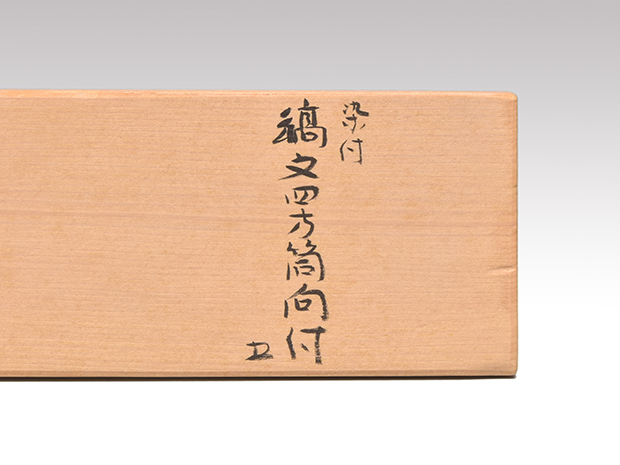 染付
縞文四方筒向付
五